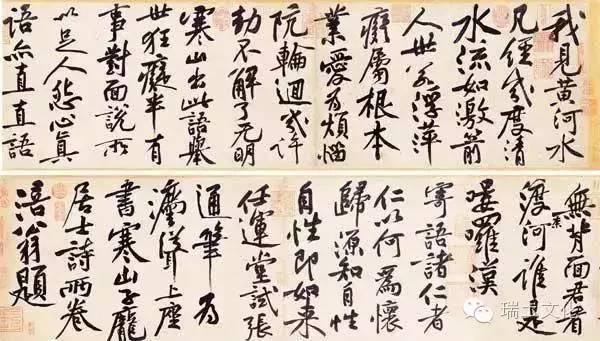 我見黃河水
凡經幾度清
水流如激箭
人世若浮萍
癡屬根本
業愛為煩惱
阬輪迴幾許
劫不解了無明
寒山出此語舉
世狂癡半有
事對面說所
以足人怨心真
語亦直直語
無背面君看
渡奈河誰是
嘍羅漢
寄語諸仁者
仁以何為懷
歸源知自性
自性即如來
任運堂試張
通筆為
灋聳上座
書寒山子龐
居士詩兩卷
涪翁題
瑞工文化